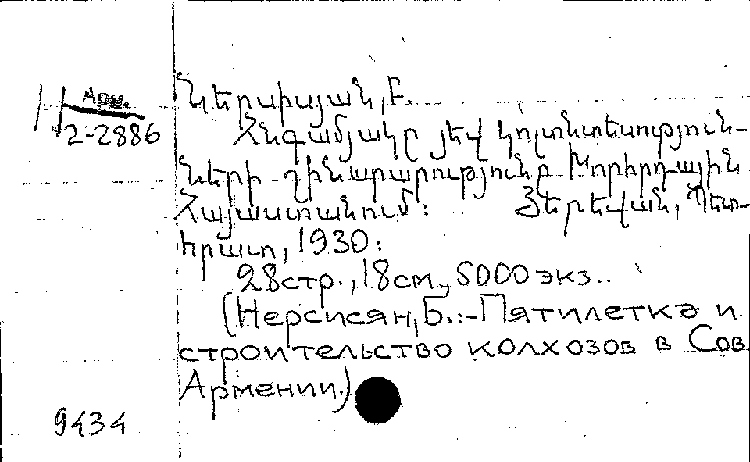 Арм.
2-2886
Ներսիսյան, Բ.
Հնգամյակը յեվ կոլտնտեսություն-
ների շինարարությունը Խորհրդային
Հայաստանում: Յերեվան, Պետ-
հրատ, 1930:
28стр., 18см., 5000экз..
(Нерсисян, Б.:-Пятилетка и
строительство колхозов в Сов.
Армении.)
9434